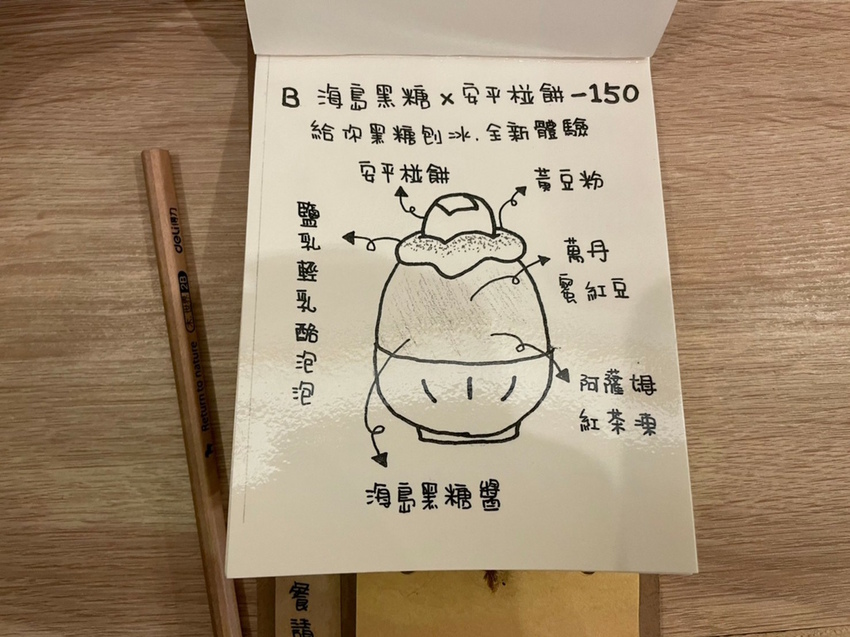 B 海島黑糖 x 安平椪餅 - 150
給你黑糖刨冰.全新體驗
安平椪餅
黃豆粉
鹽乳輕乳酪泡泡
萬丹
蜜紅豆
阿薩姆
紅茶凍
海島黑糖醬
deli 得力
2B
Return to nature
餐請